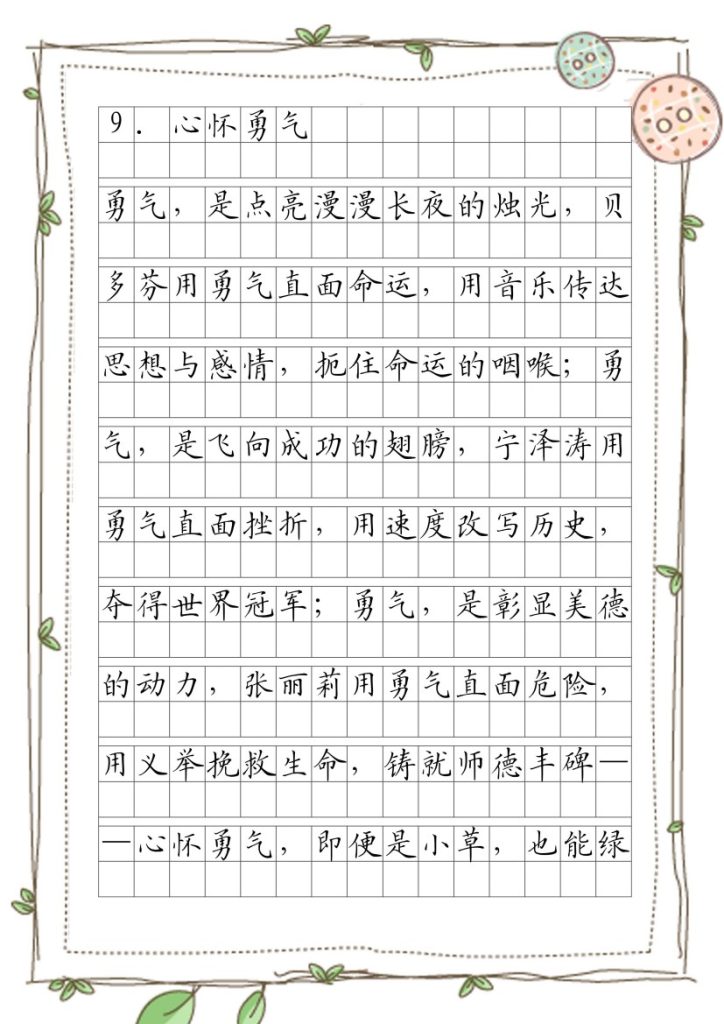 9.心怀勇气
勇气，是点亮漫漫长夜的烛光，贝
多芬用勇气直面命运，用音乐传达
思想与感情，扼住命运的咽喉；勇
气，是飞向成功的翅膀，宁泽涛用
勇气直面挫折，用速度改写历史，
夺得世界冠军；勇气，是彰显美德
的动力，张丽莉用勇气直面危险，
用义举挽救生命，铸就师德丰碑—
—心怀勇气，即便是小草，也能绿